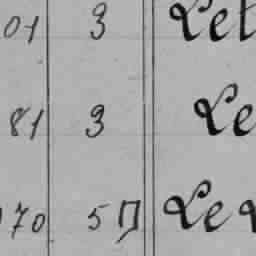 01 3 Let
81 3 Le
70 5 Д Le